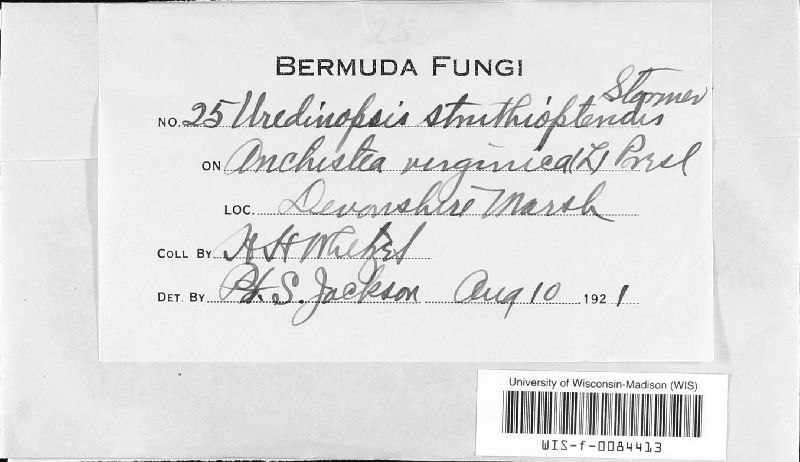 25
BERMUDA FUNGI
NO. 25 Uredinopsis struthiopteridis Störmer
ON Anchistea virginica (L) Presl
LOC. Devonshire Marsh
COLL BY H H Whetzel
DET. BY H. S. Jackson Aug 10 1921
University of Wisconsin-Madison (WIS)
WIS-f-0084413